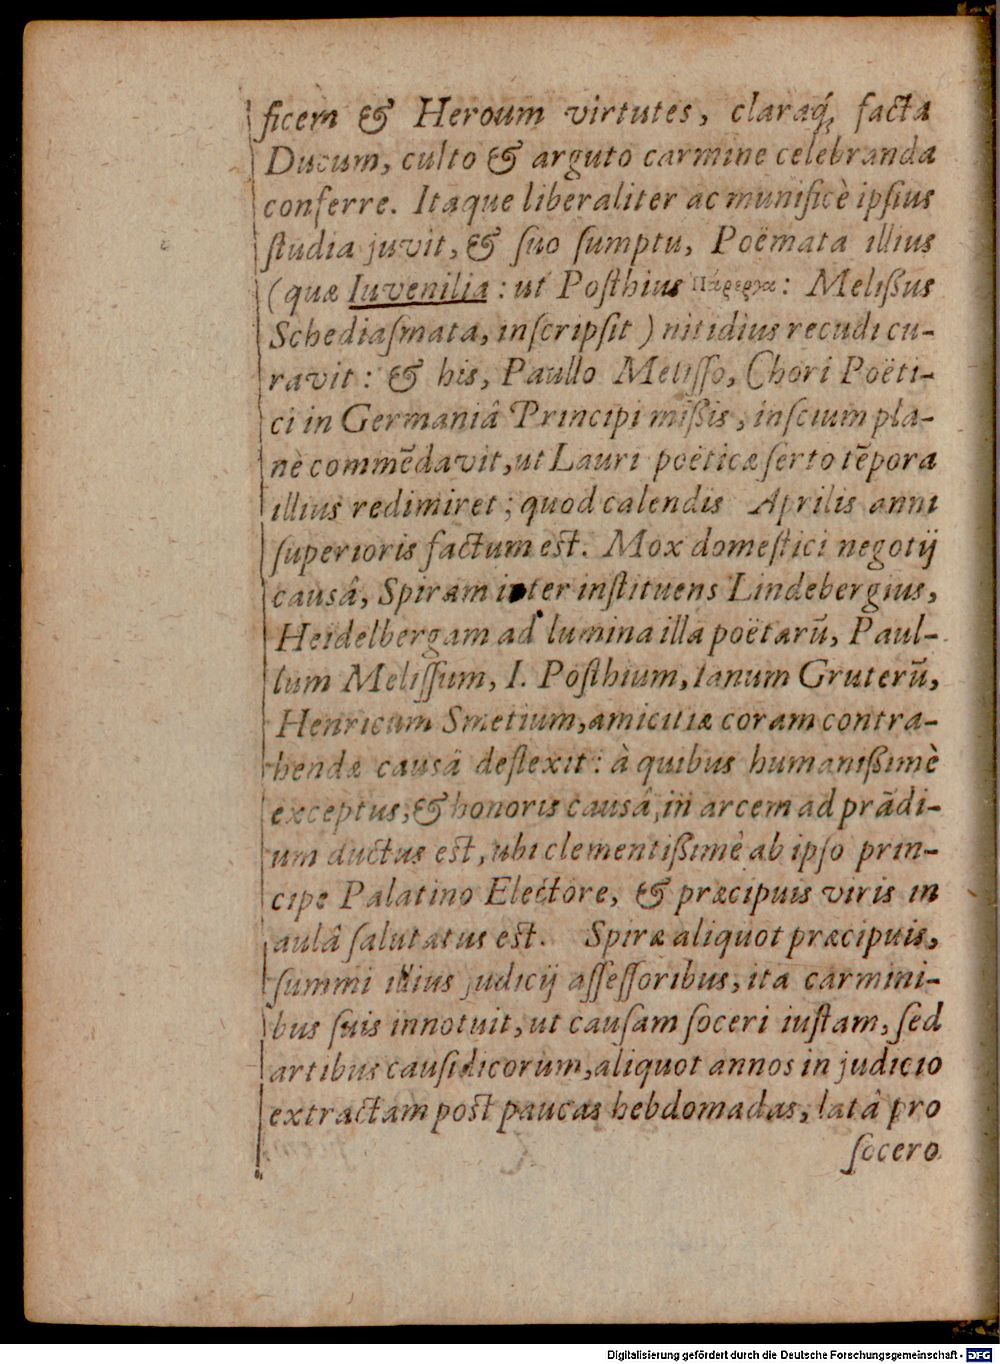 ficem & Heroum virtutes, claraq́; facta
Ducum, culto & arguto carmine celebranda
conferre. Itaque liberaliter ac munificè ipſius
ſtudia juvit, & ſuo ſumptu, Poëmata illius
(quæ Iuvenilia : ut Poſthius Πάρεργα: Melißus
Schediaſmata, inſcripſit) nitidius recudi cu-
ravit: & his, Paullo Meliſſo, Chori Poëti-
ci in Germaniâ Principi mißis, inſcium pla-
nè commẽdavit, ut Lauri poëticæ ſerto tẽpora
illius redimiret; quod calendis Aprilis anni
ſuperioris factum est. Mox domeſtici negotij
causâ, Spiram iter inſtituens Lindebergius,
Heidelbergam ad lumina illa poëtarũ, Paul-
lum Meliſſum, I. Poſthium, Ianum Gruterũ,
Henricum Smetium, amicitiæ coram contra-
hendæ causâ deflexit: à quibus humanißimè
exceptus, & honoris causâ, in arcem ad prãdi-
um ductus est, ubi clementißimè ab ipſo prin-
cipe Palatino Electore, & præcipuis viris in
aulâ ſalutatus est. Spiræ aliquot præcipuis,
ſummi illius judicij aſſeſſoribus, ita carmini-
bus ſuis innotuit, ut cauſam ſoceri iuſtam, ſed
artibus cauſidicorum, aliquot annos in judicio
extractam post paucas hebdomadas, latâ pro
ſocero
Digitalisierung gefördert durch die Deutsche Forschungsgemeinschaft - DFG